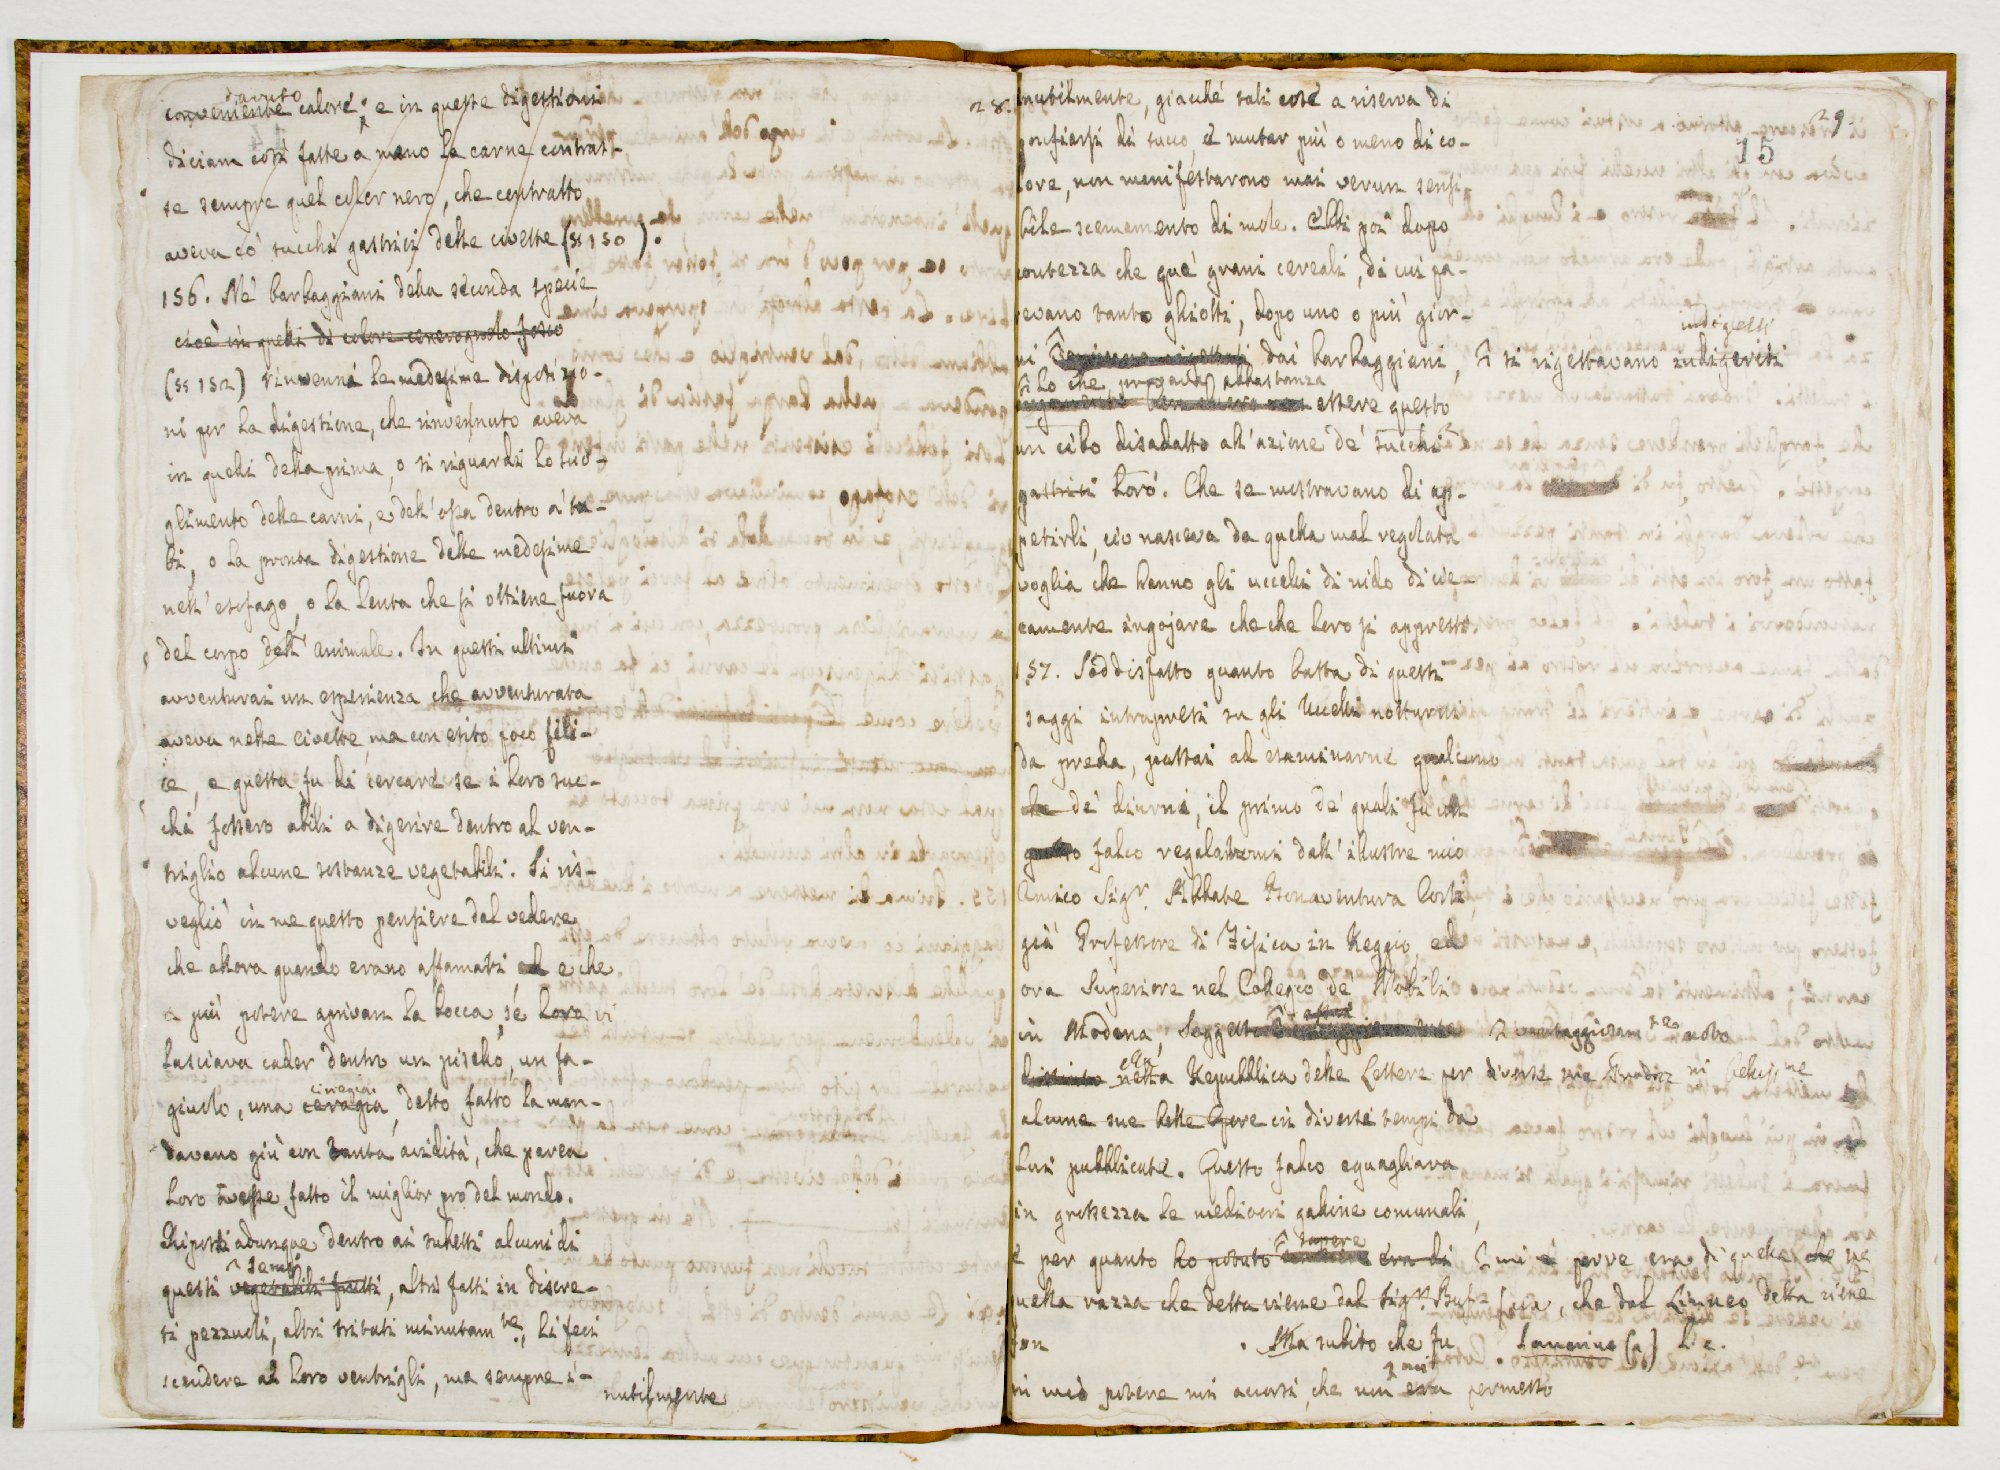 28.
dovuto
conveniente calore; e in queste digestioni
diciam così fatte a mano la carne contras-
se sempre quel color nero, che contratto
aveva co' succhi gastrici delle civette (§ 150).
156. Ne' barbaggiani della seconda specie
cioè in quelli di colore cenerognolo fosco
(§ 152) rinvenni le medesime disposizio-
ni per la digestione, che rinvenuto aveva
in quelli della prima, o si riguardi lo scio-
glimento delle carni, e dell'ossa dentro a' tu-
bi, o la pronta digestione delle medesime
nell'esofago, o la lenta che si ottiene fuora
del corpo dell' animale. In questi ultimi
avventurai un esperienza che avventurata
aveva nelle civette, ma con esito poco feli-
ce, e questa fu di cercare se i loro suc-
chi fossero abili a digerire dentro al ven-
triglio alcune sostanze vegetabili. Si ris-
vegliò in me questo pensiere dal vedere
che allora quando erano affamati, e che
a più potere aprivan la bocca, se loro vi
lasciava cader dentro un pisello, un fa-
ciregia
giuolo, una ceragia, detto fatto la man-
davano giù con tanta avidità, che parea
loro avesse fatto il miglior pro del mondo.
Riposti adunque dentro ai tubetti alcuni di
semi
questi vegetabili frutti, altri fatti in discre-
ti pezzuoli, altri tritati minutam.te, li feci
scendere al loro ventrigli, ma sempre i-
nutilmente
29
15
nutilmente, giacché tali cose a riserva di
gonfiarsi di succo, e mutar più o meno di co-
lore, non manifestarono mai verun sensi-
bile scemamento di mole. Ebbi poi dopo
contezza che que' grani cereali, di cui pa-
revano tanto ghiotti, dopo uno o più gior-
indigesti
ni dai barbaggiani, si rigettavano indigeriti
Lo che provava abbastanza
essere questo
un cibo disadatto all'azione de' succhi
gastrici loro. Che se mostravano di ap-
petirli, ciò nasceva da quella mal regolata
voglia che hanno gli uccelli di nido di cie-
camente ingojare che che loro si appresti.
157. Soddisfatto quanto basta di questi
saggi intrapresi su gli Uccelli notturni
da preda, passai ad esaminarne qualcuno
de' diurni, il primo de' quali fu un
falco regalatomi dall'illustre mio
Amico Sig.r Abbate Bonaventura Corti,
già Professore di Fisica in Reggio, ed
ora Superiore nel Collegio de' Nobili
in Modena, Soggetto assai vantaggiosam.te noto
alla
nella Repubblica delle Lettere per diverse
alcune sue belle Opere in diversi tempi da
lui pubblicate. Questo falco eguagliava
in grossezza le mediocri galline comunali,
sapere
e per quanto ho potuto era di mi parve era di quelle che
quella razza che detta viene dal Sig.r Buffon, che dal Linneo detta viene
Ma subito che fu Lanarius (a) L. c.
in mio potere mi accorsi, che non mi era permesso